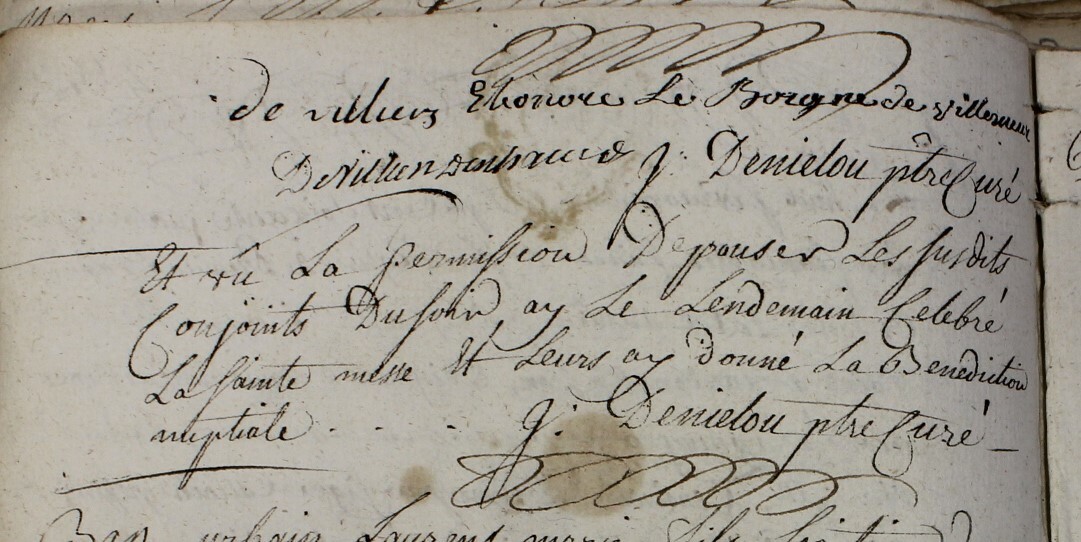 de villiers Elionore Le Borgne de villemeur
De Villiers J. Denielou ptre Curé
Et vû La permission Depouser Les susdits
Conjoints Du soir ay Le Lendemain Celebré
La sainte messe Et Leurs ay donné La Benediction
nuptiale . . . J. Denielou ptre Curé
urbain Laurent marie fils